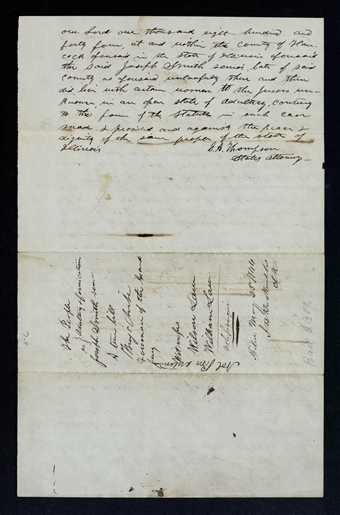 our Lord one thousand eight hundred and
forty four, at and within the County of Han-
cock aforesaid in the state of Illinois aforesaid
the said Joseph Smith senior late of said
County as aforesaid unlawfully then and there
did live with certain women to the Jurors un-
known in an open state of Adultery, contrary
to the form of the Statute in such case
made & provided and against the peace &
dignity of the same people of the state of
Illinois
E. A. Thompson
States Attorney
The People
vs Adultery & fornication
Joseph Smith senr
A true bill
Foreman of the Grand
Jury
Witnesses
Wilson Law
William Law
Nol Pros
Filed May
Bail $